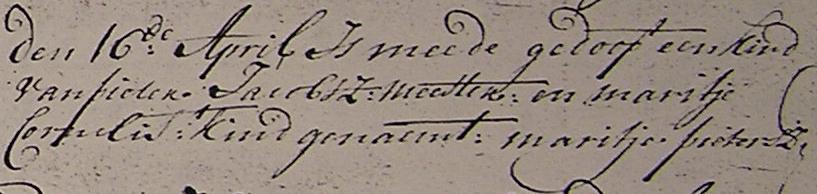 den 16de: April Is meede gedoopt een kind
van pieter Jacobsz: meetter: en maritje
Cornelis: kind genaemt: maritje pieters